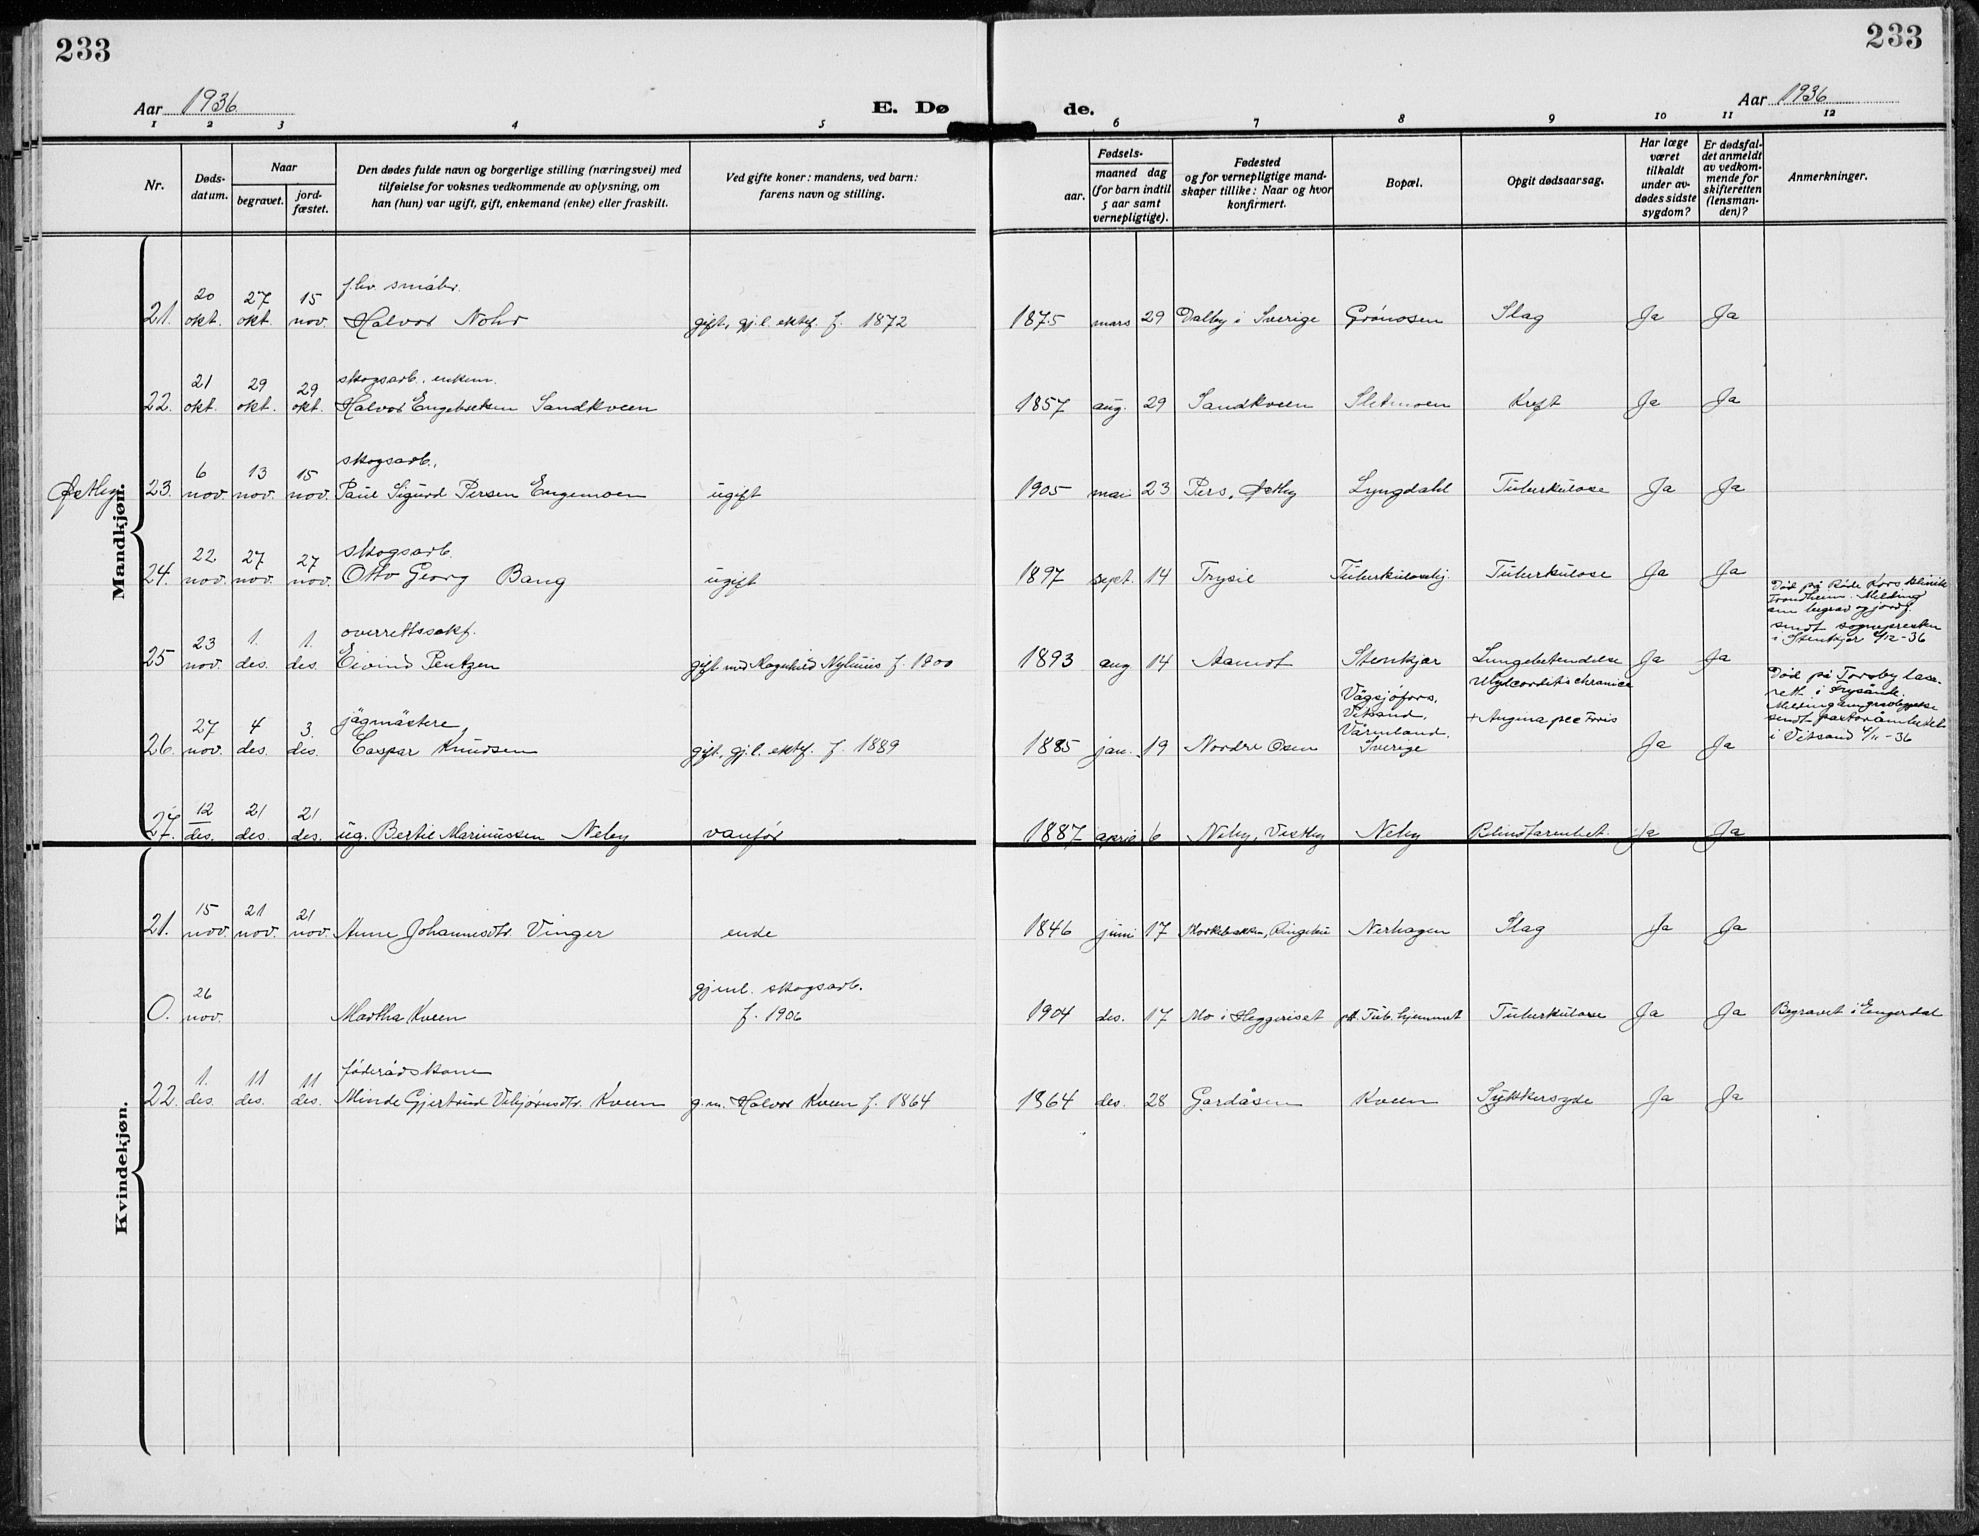 233
233
Aar 1936
E. Dø
de.
Aar 1936
1 2 3 4 5 6 7 8 9 10 11 12
Nr.
Døds-
datum.
Naar
begravet.
jord-
fæstet.
Den dødes fulde navn og borgerlige stilling (næringsvei) med
tilføielse for voksnes vedkommende av oplysning, om
han (hun) var ugift, gift, enkemand (enke) eller fraskilt.
Ved gifte koner: mandens, ved barn:
farens navn og stilling.
Fødsels-
aar.
maaned dag
(for barn indtil
5 aar samt
vernepligtige).
Fødested
og for vernepligtige mand-
skaper tillike: Naar og hvor
konfirmert.
Bopæl.
Opgit dødsaarsag.
Har læge
været
tilkaldt
under av-
dødes sidste
sygdom?
Er dødsfal-
det anmeldt
av vedkom-
mende for
skifteretten
(lensman-
den)?
Anmerkninger.
Mandkjøn.
20 27 15 fhv. småbr.
21. okt. okt. nov. Halvor Nohr gift, gj.l. ektef. f. 1872 1875 mars 29 Dalby i Sverige Grønosen Slag Ja Ja
21 29 29 skogsarb. enkem.
22. okt. okt. okt. Halvor Engebretsen Sandkveen 1857 aug. 29 Sandkveen Sletmoen Kreft Ja Ja
6 13 15 skogsarb.,
Østby 23. nov. nov. nov. Paul Sigurd Persen Engemoen ugift 1905 mai 23 Pers, Østby Lyngdahl Tuberkulose Ja Ja
22 27 27 skogsarb.
24. nov. nov. nov. Otto Georg Bang ugift 1897 sept. 14 Trysil Tuberkulosehj. Tuberkulose Ja Ja
Død på Røde Kors klinikk
Trondheim. Melding
om begrav og jordf.
sendt sognepresten
i Stenkjer 9/12-36
23 1. 1. overrettssakf.
25 nov. des. des. Eivind Pentzen gift med Ragnhild Nyhuus f. 1900 1893 aug 14 Aamot Stenkjær Lungebetendelse Ja Ja
Død på Torsby lasa-
rett i Frysånde.
sendt pastorämbetet
i Vitsand 4/11-36
27 4 3. jägmästere
26. nov. des. des. Caspar Knudsen gift, gj.l. ektef. f. 1889 1885 jan. 19 Nordre Osen
Vägsjöfors,
Vitsand,
Värmland.
Sverige
Myocarditis chronica
+ Angina pectoris
Ja Ja
12 21 21
27. des. des. des. ug. Bertil Marinussen Neby vanfør 1887 april 6 Neby, Vestby Neby Blindtarmbet. Ja Ja
Kvindekjøn.
15 21 21
21. nov. nov. nov. Anne Johannesdtr. Vinger enke 1846 juni 17 Morkebakken, Ringebu Nerhagen Slag Ja Ja
26 gj.m.l. skogsarb.
0. nov. Martha Kveen f. 1906 1904 des. 17 Mo i Heggeriset pt. Tub. hjemmet Tuberkulose Ja Ja Begravet i Engerdal
1. 11 11 føderådskone
22. des. des. des. Minde Gjertrud Vebjørnsdtr. Kveen g.m. Halvor Kveen f. 1864 1864 des. 28 Gardåsen Kveen Sukkersyke Ja Ja